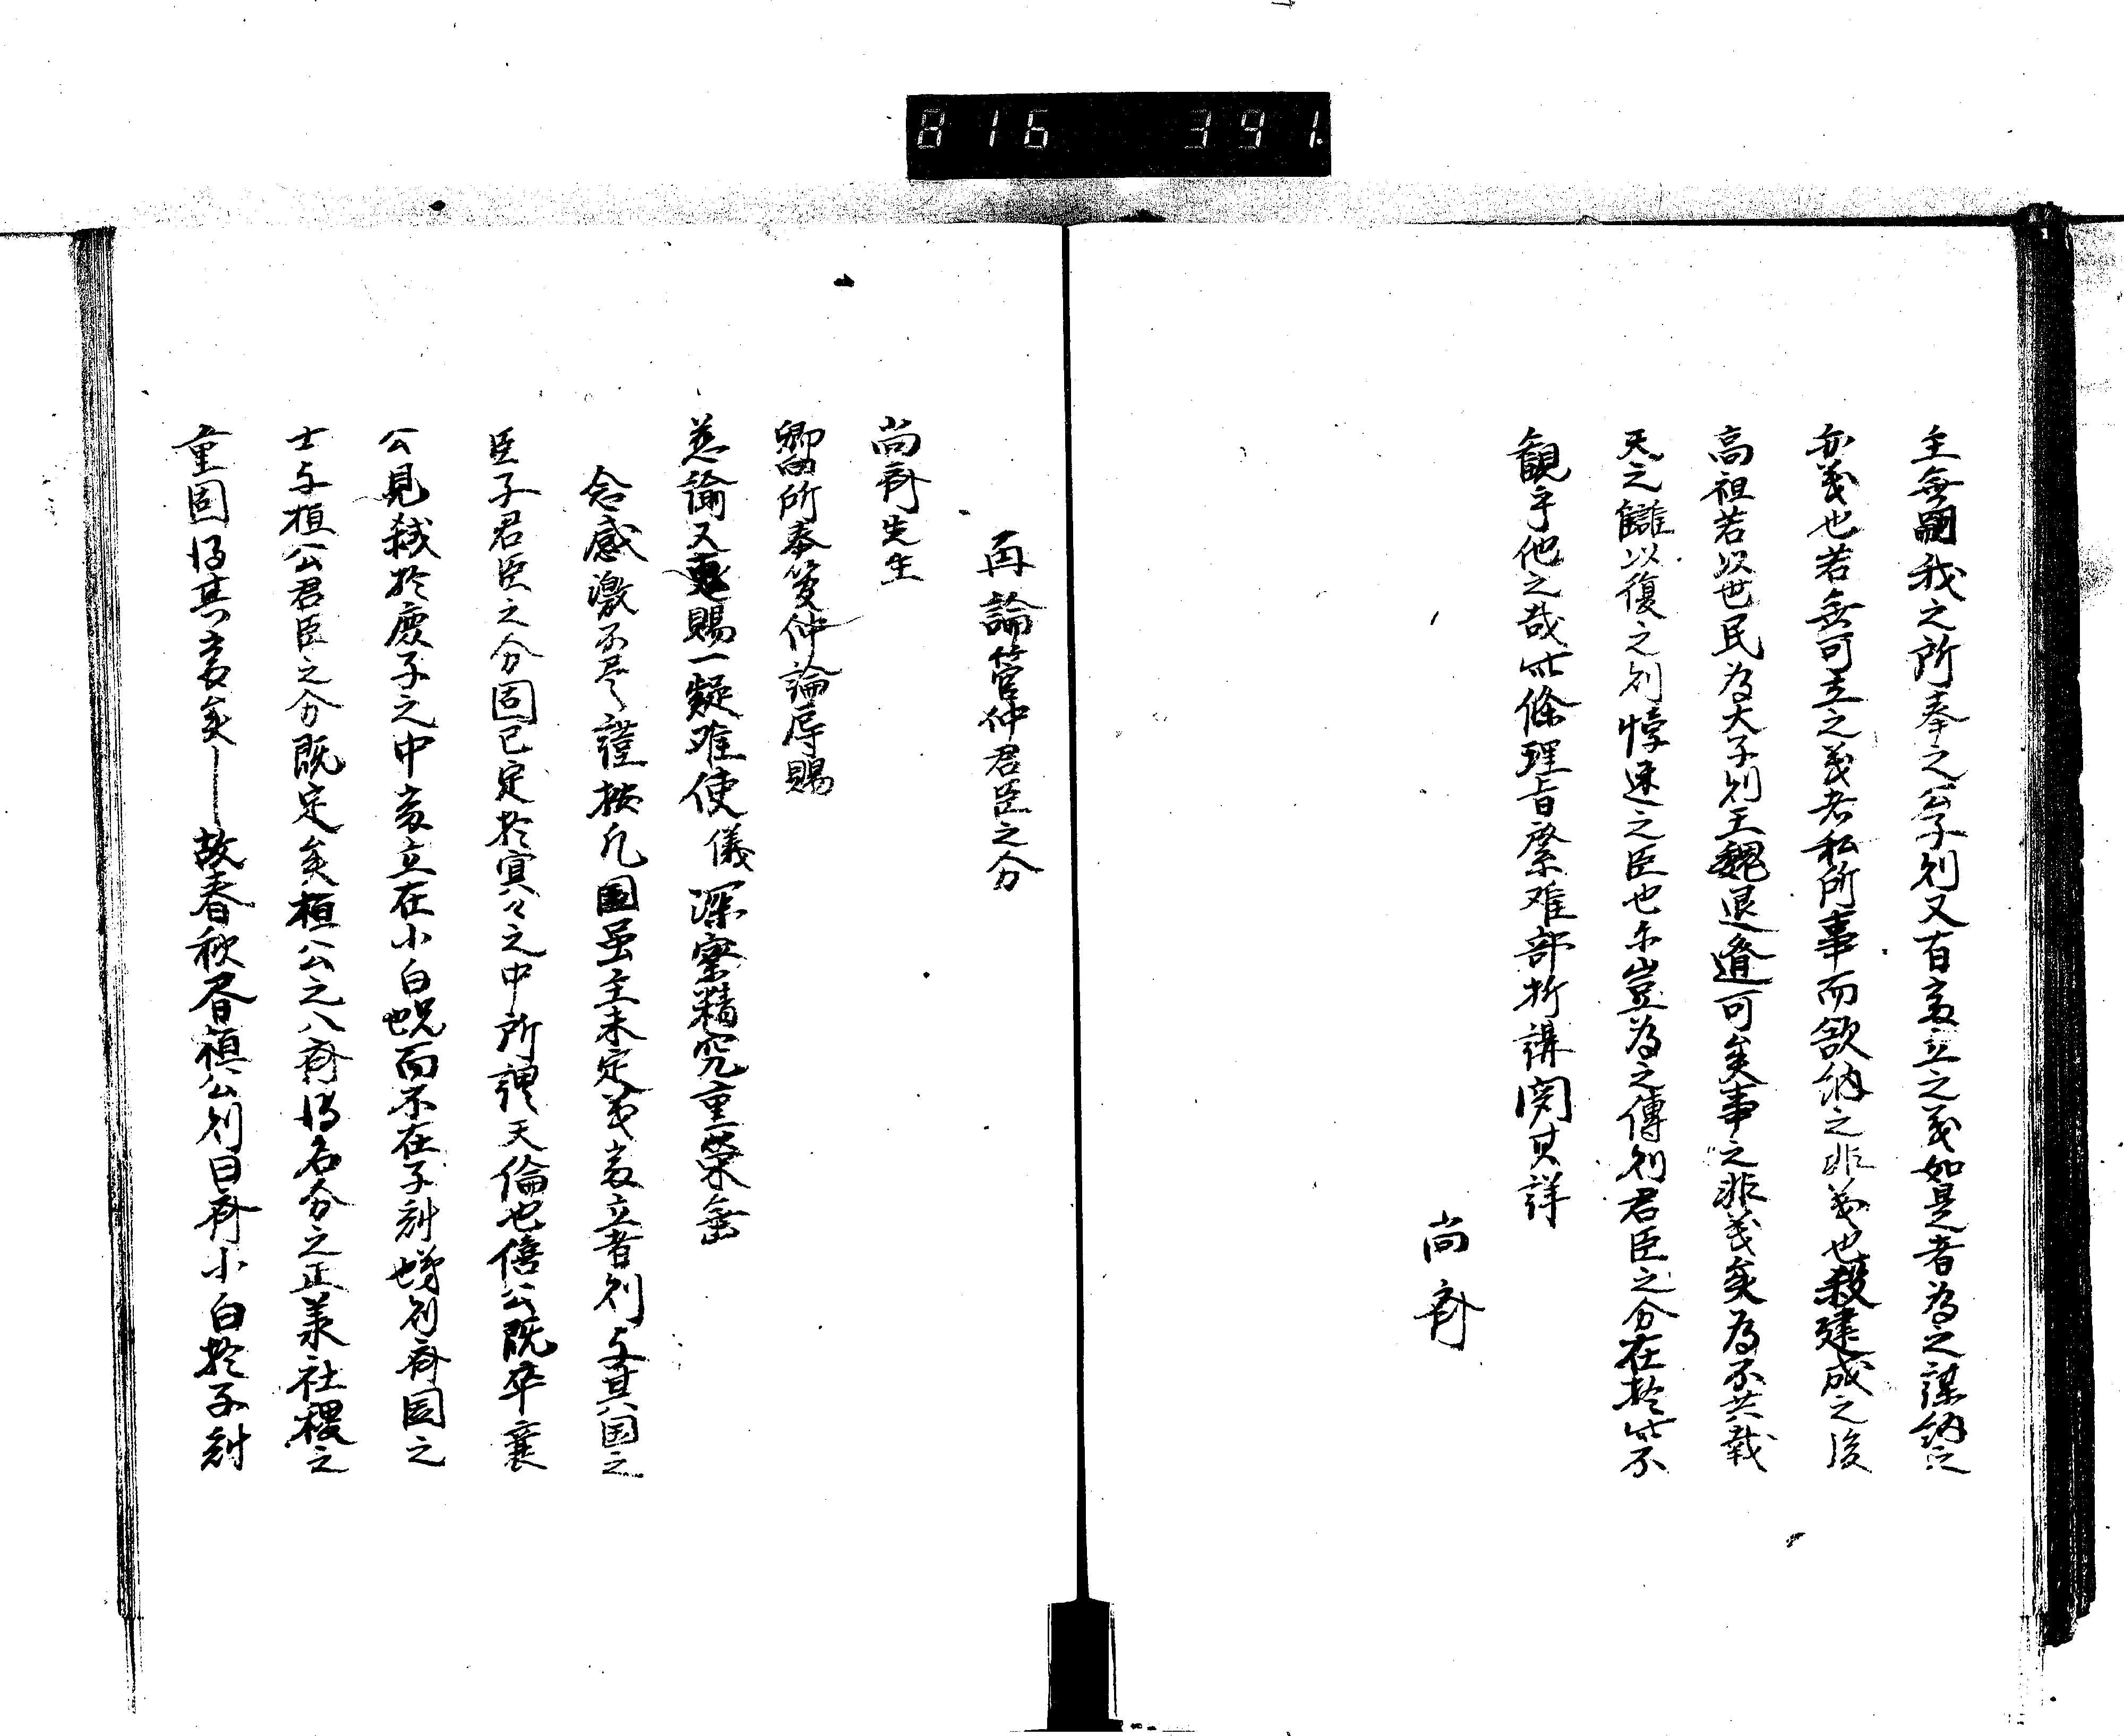 816 391.
主無嗣我之所奉之公子則又有當立之義如是者為之謀納之
亦義也若無可立之義者私所事而欲納之非義也殺建成之後
高祖若以世民為大子則王魏退避可矣事之非義矣為不共戴
天之讎以復之則悖逆之臣也尓豈為之傅則君臣之分在於此不
観乎他之哉此條理旨緊难部析講閲其詳
尚斎
再論管仲君臣之分
尚斎先生
嚮所奉管仲論辱賜
慈諭又惠賜一疑难使儀深察精究重蒙無
念感激不尽謹按凡國虽主未定義當立者則与其国之
臣子君臣之分固已定於冥々之中所謂天倫也僖公既卒襄
公見弑於慶子之中當立在小白也兄而不在子糾也弟則斎国之
士与桓公君臣之分既定矣桓公之入斎得名分之正義社稷之
重固得其當矣故春秋春穎公則曰斎小白於子糾